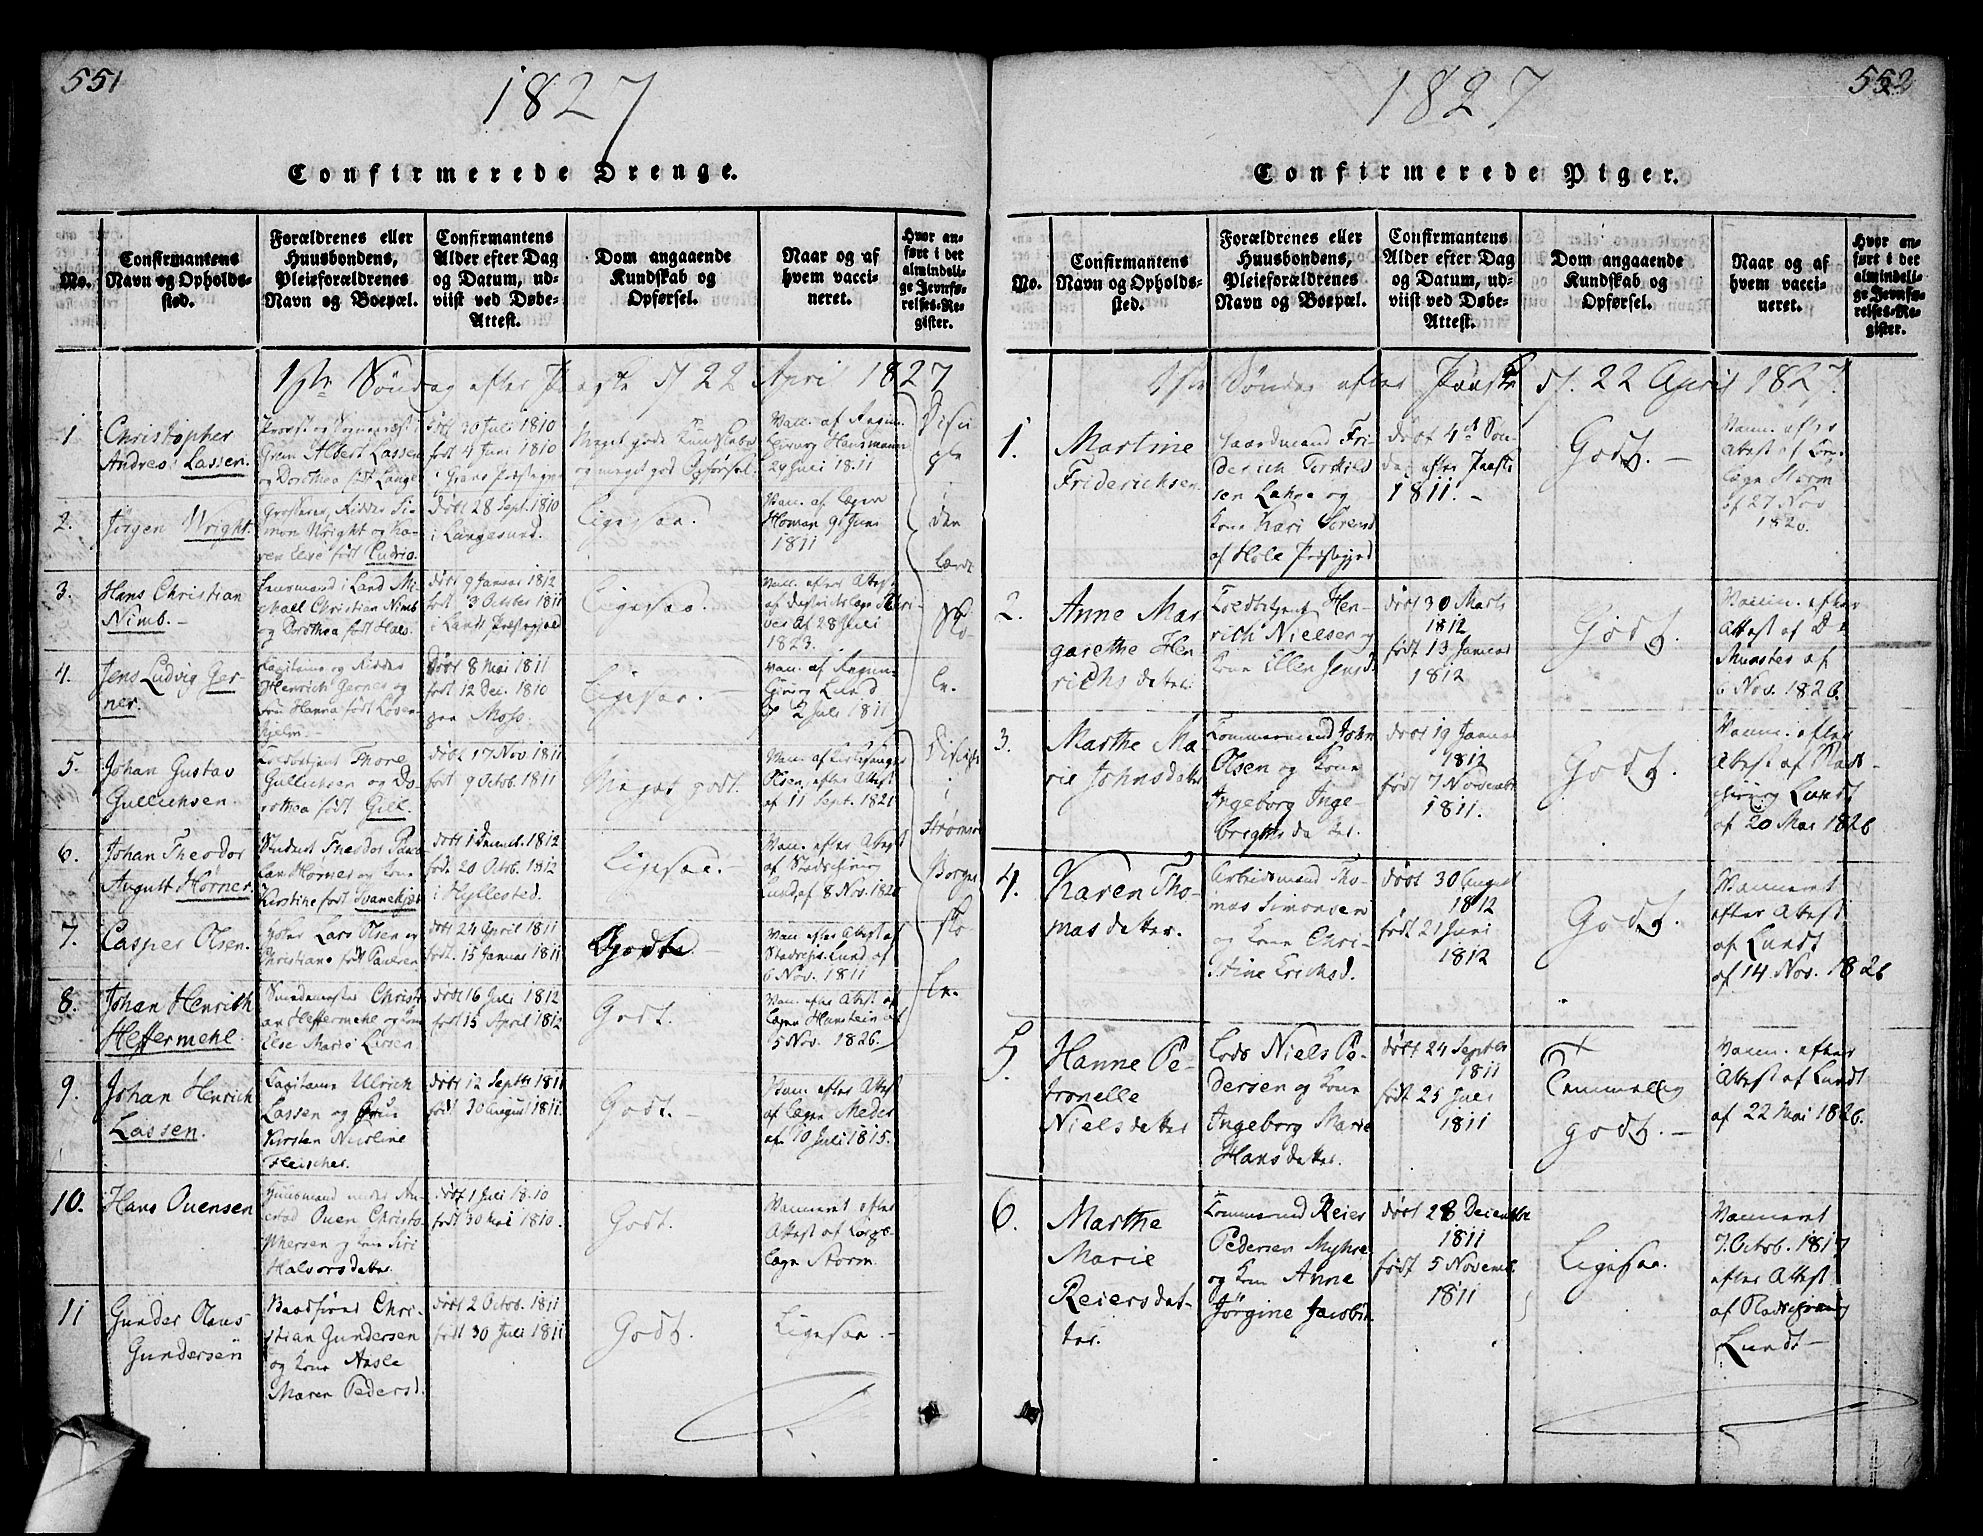 551
1827
Confirmerede Drenge.
No.
Confirmantens
Navn og Opholds-
sted.
Forældrenes eller
Huusbondens,
Pleieforældrenes
Navn og Boepæl.
Confirmantens
Alder efter Dag
og Datum, ud-
viist ved Døbe-
Attest.
Dom angaaende
Kundskab og
Opførsel.
Naar og af
hvem vacci-
neret.
Hvor an-
ført i det
almindeli-
ge Jevnfø-
relses-Re-
gister.
1ste Søndag efter Paaske d/ 22 April 1827
1
Christopher
Andreas Lassen.
Provst og Sognepræst i
Gran Albert Lassen
og Dorothea født Lange
døbt 30 Juli 1810
født 4 Juni 1810
i Grans Præstegield
Meget gode Kundskaber
og meget god Opførsel.
Vacc. af Regim.
Chirurg Hansmann
29 Juli 1811
2.
Jørgen Wright.
Grosserer, Ridder Si-
mon Wright og Ka-
ren Else født Cudrio.
døbt 28 Sept. 1810
i Langesund.
Ligesaa.
Vac. af Læge
Homan 9 Juni
1811
3.
Hans Christian
Nimb. -
Lensmand i Land Mi-
chall Christian Nimb
og Dorothea født Hals.
døbt 9 Januar 1812
født 3 October 1811
i Lands Præstegield
Ligesaa.
Vac. efter Attest
af Districtslæge
af 28 Juli
1823.
4.
Jens Ludvig Ger-
ner.
Capitaine og Ridder
Henrich Gerner og
Fru Hanna født Løven-
skjelm. -
døbt 8 Mai 1811
født 12 Dec. 1810
paa Moss.
Ligesaa. -
Vacc. af Regim.
Chirurg Lund
2 Juli 1811
Disci
ple
i
den
lærde
Sko-
le.
5.
Johan Gustav
Gullichsen.
Toldbetjent Thore
Gullichsen og Do-
rothea født Gilk.
døbt 17 Nov 1811
født 9 Octob. 1811
Meget godt.
Vac. af Kirkesanger
Olsen, efter Attest
af 11 Sept. 1821
6.
Johan Theodor
August Hørner.
Student Theodor
Hørner og Kone
Kirstine født Svanekjær
døbt 1 Decemb. 1812
født 20 Octob. 1812
i Hyllested.
Ligesaa.
Vac. efter Attest
af Stadschirurg
Lund, af 8 Nov. 1826
7.
Casper Olsen.
Lars Olsen og
Christiane født Paulsen
døbt 24 April 1811
født 15 Januar 1811
Godt.
Vac. efter Attest af
Lund af
6 Nov. 1811
8.
Johan Henrich
Heffermehl.
Christi-
an Heffermehl og Kone
Else Marie Larsen
døbt 16 Juli 1812
født 15 April 1812
Godt.
Vac. efter Attest af
Læge Hunstein af
5 Nov. 1826.
Disciple
i
Strømsøe
Borger
sko-
le.
9.
Johan Henrich
Lassen.
Capitaine Ulrich
Lassen og Frue
Kirsten Nicoline
Fleischer.
døbt 12 Septbr 1811
født 30 August 1811.
Godt. -
Vac. efter Attest
af Læge Meder
af 10 Juli 1815.
10.
Hans Ouensen
Huusmand under
Ouen Christo-
phersen og Kone Siri
Halvorsdatter.
døbt 1 Juli 1810
født 30 Mai 1810.
Godt.
Vaccineret efter
Attest af Corps-
læge Storm.
11
Gunder Olaus
Gundersen
Baadfører Chri-
stian Gundersen
og Kone Aasle
Maren Pedersd.
døbt 2 Octob. 1811
født 30 Juli 1811
Godt.
Ligesaa. -
552
1827
Confirmerede Piger.
No.
Confirmantens
Navn og Opholds-
sted.
Forældrenes eller
Huusbondens,
Pleieforældrenes
Navn og Boepæl.
Confirmantens
Alder efter Dag
og Datum, ud-
viist ved Døbe-
Attest.
Dom angaaende
Kundskab og
Opførsel.
Naar og af
hvem vacci-
neret.
Hvor an-
ført i det
almindeli-
ge Jevnfø-
relses-Re-
gister.
1ste Søndag efter Paaske d/. 22 April 1827.
1.
Martine
Friderichsen
Gaardmand Fri-
derich Terkild-
sen Lahne og
Kone Kari Sørensd
af Hole Præstegjeld
døbt 4de Søn-
dag efter Paaske
1811. -
Godt. -
Vacc. efter
Attest af
Læge Storm
af 27 Nov
1820.
2.
Anne Mar
garethe Hen
richsdatter
Toldbetjent Hen-
rich Nielsen og
Kone Ellen Jensd.
døbt 30 Marts
1812
født 13 Januar
1812
Godt.
Vaccin. efter
Attest af Dr
Münster af
6 Nov. 1826.
3.
Marthe Ma
rie Johnsdatter
Tømmermand John
Olsen og Kone
Ingeborg Inge-
brigtsdatter.
døbt 19 Januar
1812
født 7 November
1811.
Godt.
Vaccin. efter
Attest af Rads-
chirurg Lundt
af 20 Mai 1826
4.
Karen Tho-
masdatter.
Arbeidsmand Tho-
mas Simonsen
og Kone Chri-
stine Erichsd.
døbt 30 August
1812
født 21 Juni
1812
Godt.
Vaccineret
efter Attest
af Lundt
af 14 Nov. 1826
5.
Hanne Pe-
tronelle
Nielsdatter
Lods Niels Pe-
dersen og Kone
Ingeborg Marie
Hansdatter.
døbt 24 Septbr
1811
født 25 Juli
1811
Temmelig
godt. -
Vaccin. efter
Attest af Lundt
af 22 Mai 1826.
6.
Marthe
Marie
Reiersdat-
ter.
Tømmermd Reier
Pedersen Myhre
og Kone Anne
Jørgine Jacobsd.
døbt 28 December
1811
født 5 Novemb.
1811
Ligesaa.
Vaccineret
7. Octob. 1817
efter Attest
af Radschirurg
Lundt -